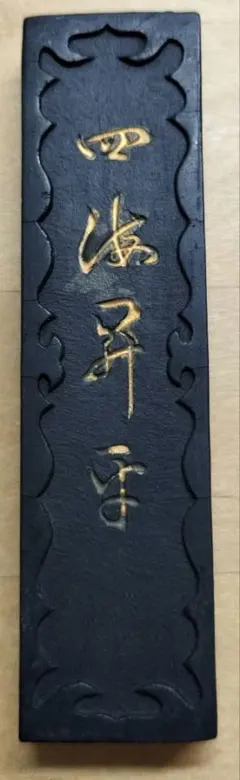 四海昇平